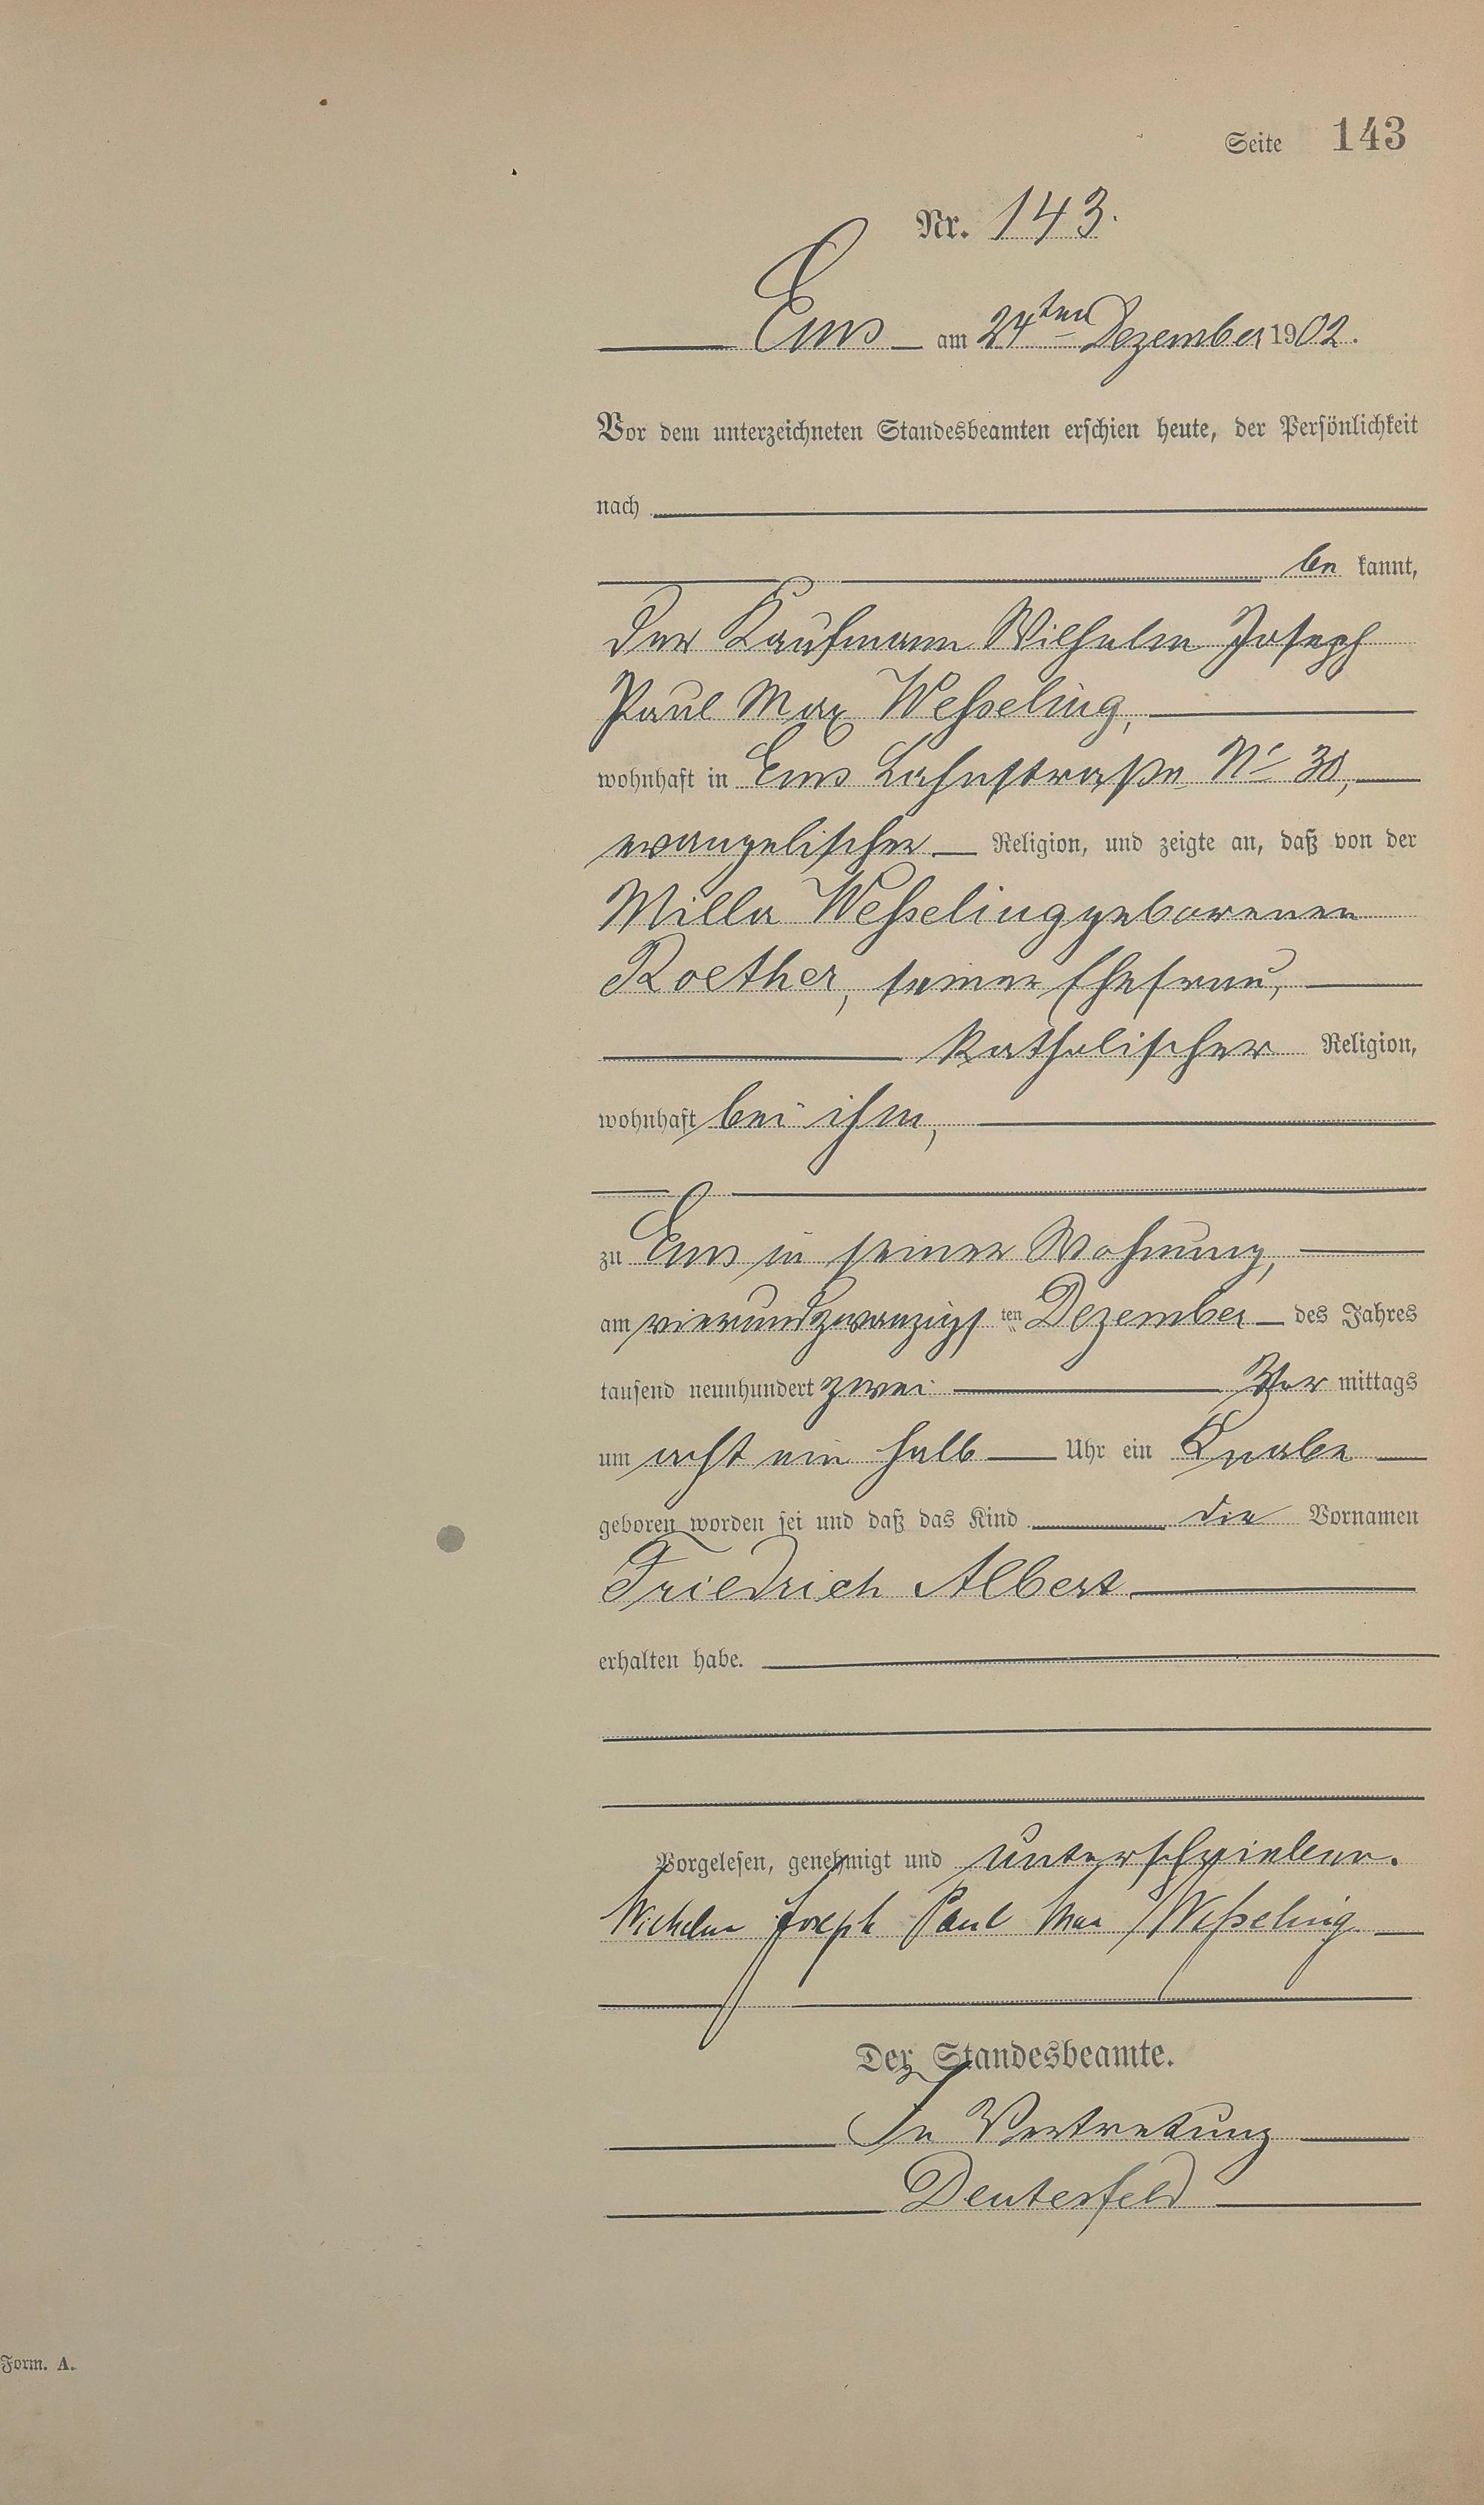 Seite 143
Nr. 143.
Ems am 24ten Dezember 1902.
Vor dem unterzeichneten Standesbeamten erschien heute, der Persönlichkeit
nach
be kannt,
der Kaufmann Wilhelm Joseph
Paul Max Wesseling,
wohnhaft in Ems Lahnstraße No 30,
evangelischer Religion, und zeigte an, daß von der
Milla Wesseling geborenen
Roether, seiner Ehefrau,
katholischer Religion,
wohnhaft bei ihm,
zu Ems in seiner Wohnung,
am vierundzwanzigs ten Dezember des Jahres
tausend neunhundert zwei Vor mittags
um acht ein halb Uhr ein Knabe
geboren worden sei und daß das Kind die Vornamen
Friedrich Albert
erhalten habe.
Vorgelesen, genehmigt und unterschrieben.
Wilhelm Joseph Paul Max Wesseling
Der Standesbeamte.
In Vertretung
Deuterfeld
Form. A.